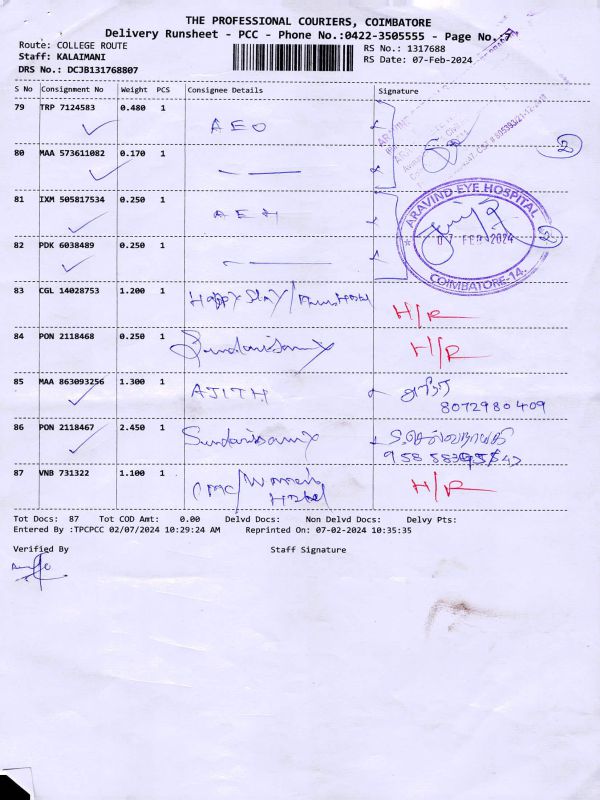 THE PROFESSIONAL COURIERS, COIMBATORE
Delivery Runsheet - PCC - Phone No.:0422-3505555 - Page No.:7
Route: COLLEGE ROUTE
RS No.: 1317688
Staff: KALAIMANI
RS Date: 07-Feb-2024
DRS No.: DCJB131768807
S No Consignment No Weight PCS Consignee Details Signature
79 TRP 7124583 0.480 1
AEO
80 MAA 573611082 0.170 1
2
81 IXM 505817534 0.250 1
AEH
ARAVIND EYE HOSPITAL
07 FEB 2024
2
COIMBATORE-14.
82 PDK 6038489 0.250 1
83 CGL 14028753 1.200 1
Happy Stay/ Hostel
H/R
84 PON 2118468 0.250 1
H/R
85 MAA 863093256 1.300 1
AJITH
அஜித்
8072980409
86 PON 2118467 2.450 1
87 VNB 731322 1.100 1
CMC/Women's
Hostel
H/R
Tot Docs: 87 Tot COD Amt: 0.00 Delvd Docs: Non Delvd Docs: Delvy Pts:
Entered By :TPCPCC 02/07/2024 10:29:24 AM Reprinted On: 07-02-2024 10:35:35
Verified By Staff Signature